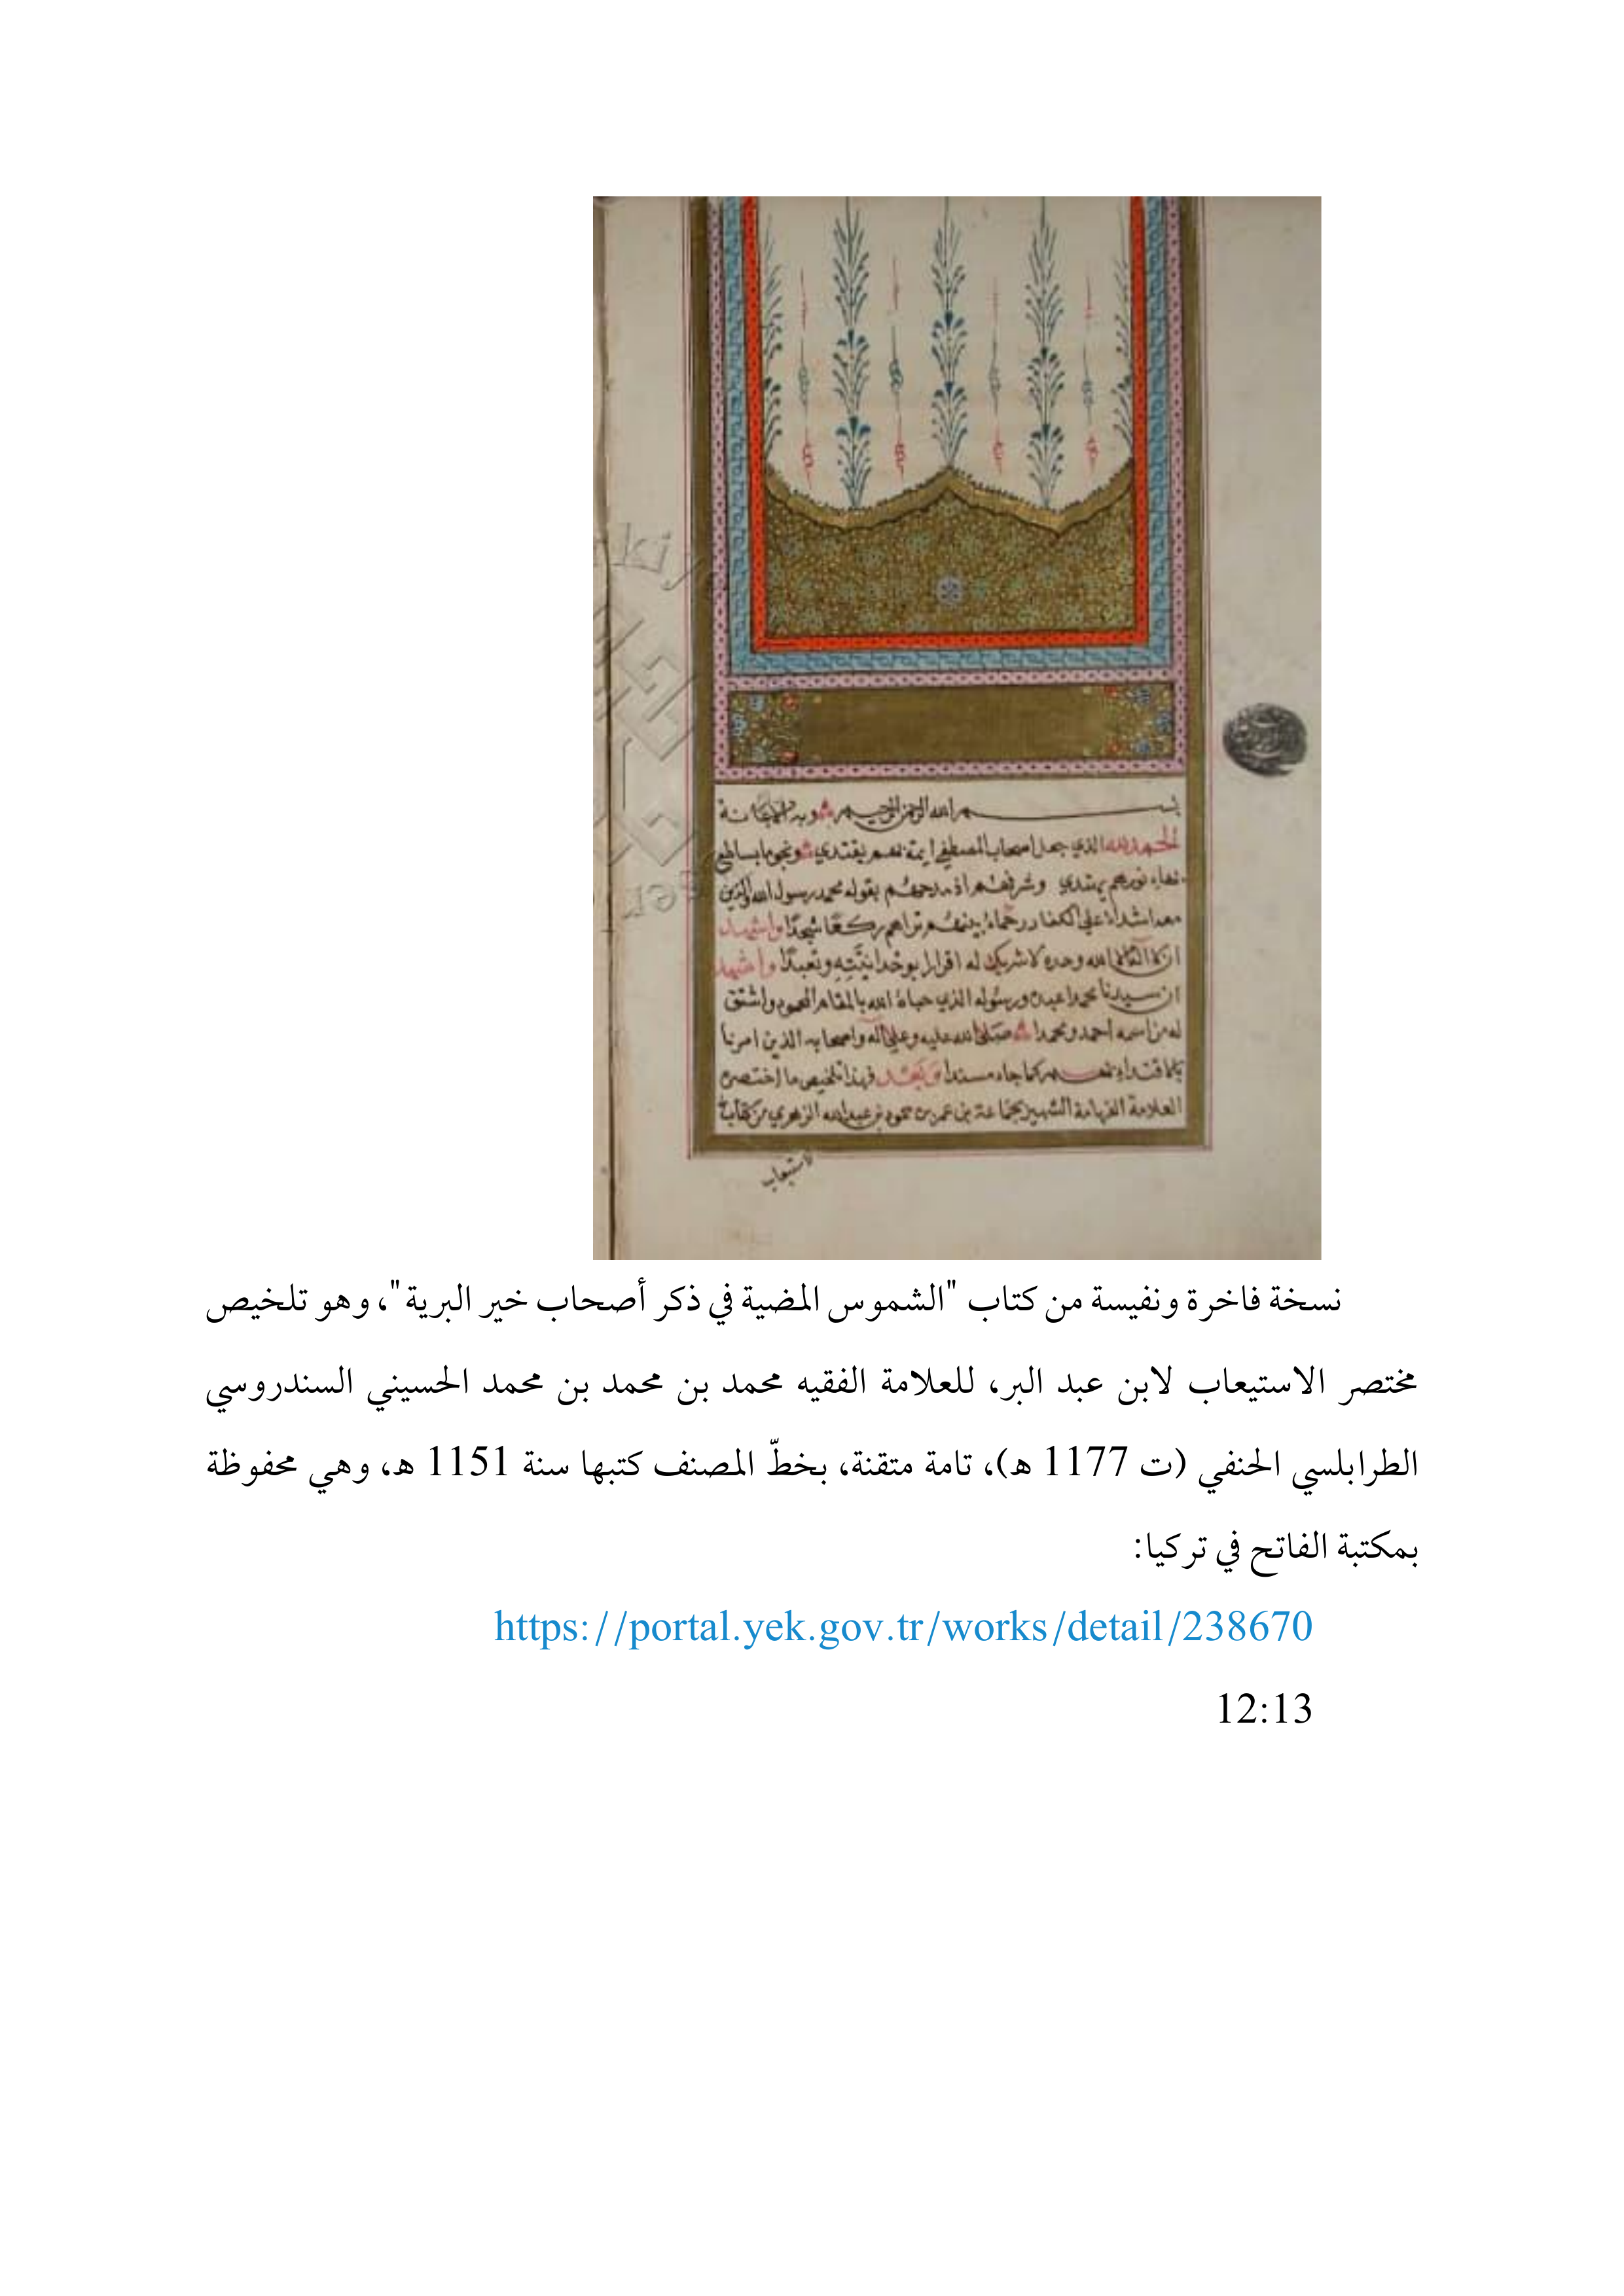 بسم الله الرحمن الرحيم وبه الاعانة
الحمد لله الذي جعل اصحاب المصطفى ايمة بهم يقتدي ونجوما بساطع
نورهم يهتدي وشرفهم اذ مدحهم بقوله محمد رسول الله والذين
معه اشداء على الكفار رحماء بينهم تراهم ركعا سجدا واشهد
ان لا اله الا الله وحده لا شريك له اقرارا بوحدانيته وتعبدا واشهد
ان سيدنا محمدا عبده ورسوله الذي حباه الله بالمقام المحمود واشتق
له من اسمه احمد ومحمدا صلى الله عليه وعلى آله واصحابه الذين امرنا
بالاقتداء بهم كما جاء مسندا وبعد فهذا تلخيص ما اختصره
العلامة الفهامة الشهير بن عمر بن محمود بن عبد الله الزهري من كتاب
الاستيعاب
نسخة فاخرة ونفيسة من كتاب "الشموس المضية في ذكر أصحاب خير البرية"، وهو تلخيص
مختصر الاستيعاب لابن عبد البر، للعلامة الفقيه محمد بن محمد بن محمد الحسيني السندروسي
الطرابلسي الحنفي (ت 1177 هـ)، تامة متقنة، بخطّ المصنف كتبها سنة 1151 هـ، وهي محفوظة
بمكتبة الفاتح في تركيا:
https://portal.yek.gov.tr/works/detail/238670
12:13